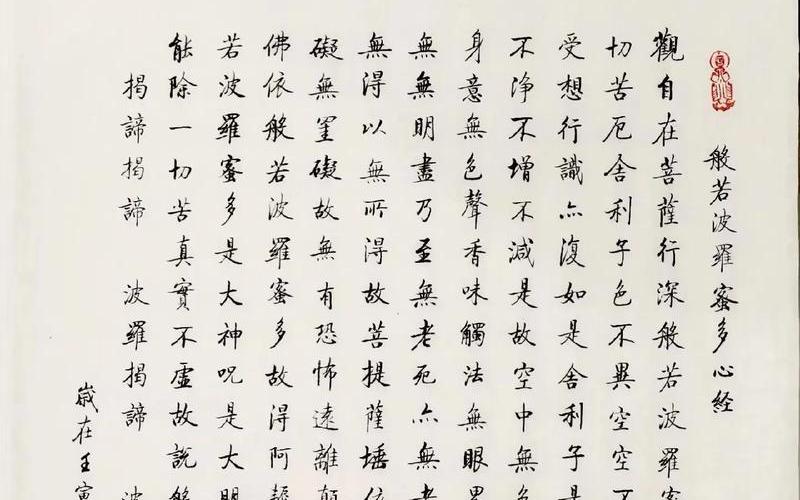 般若波羅蜜多心経
觀自在菩薩行深般若波羅蜜
切苦厄舍利子色不異空空不
受想行識亦復如是舍利子是
不淨不增不減是故空中無色
身意無色聲香味觸法無眼界
無無明盡乃至無老死亦無老
無得以無所得故菩提薩埵依
礙無罣礙故無有恐怖遠離顛
佛依般若波羅蜜多故得阿耨
若波羅蜜多是大神呪是大明
能除一切苦真實不虛故說般
揭諦揭諦 波羅揭諦 波
歲在壬寅